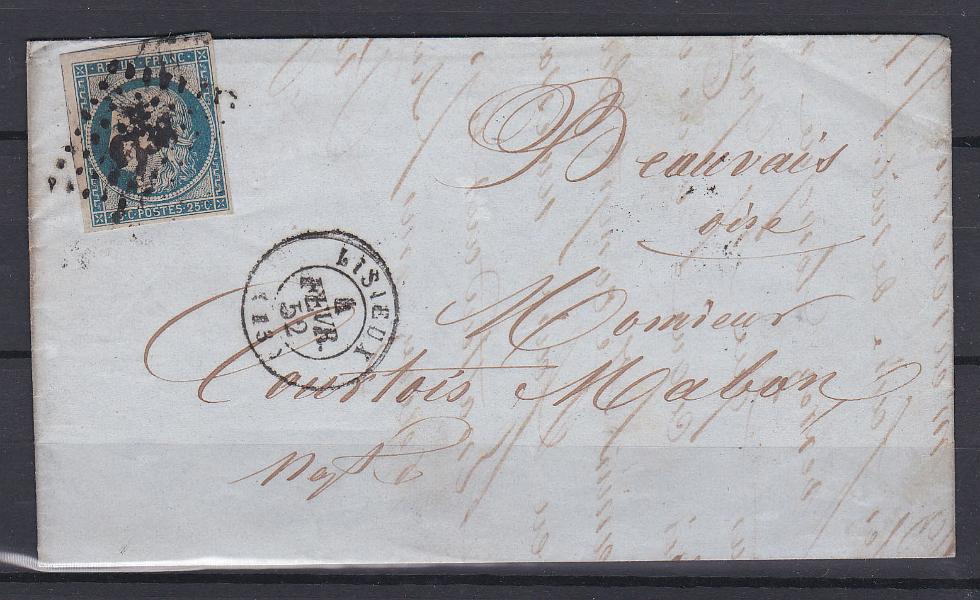 REPUB·FRANC·
C·POSTES·25·C
LISIEUX
FEVR.
52
(13)
Beauvais
oise
Monsieur
Courtois Mabon